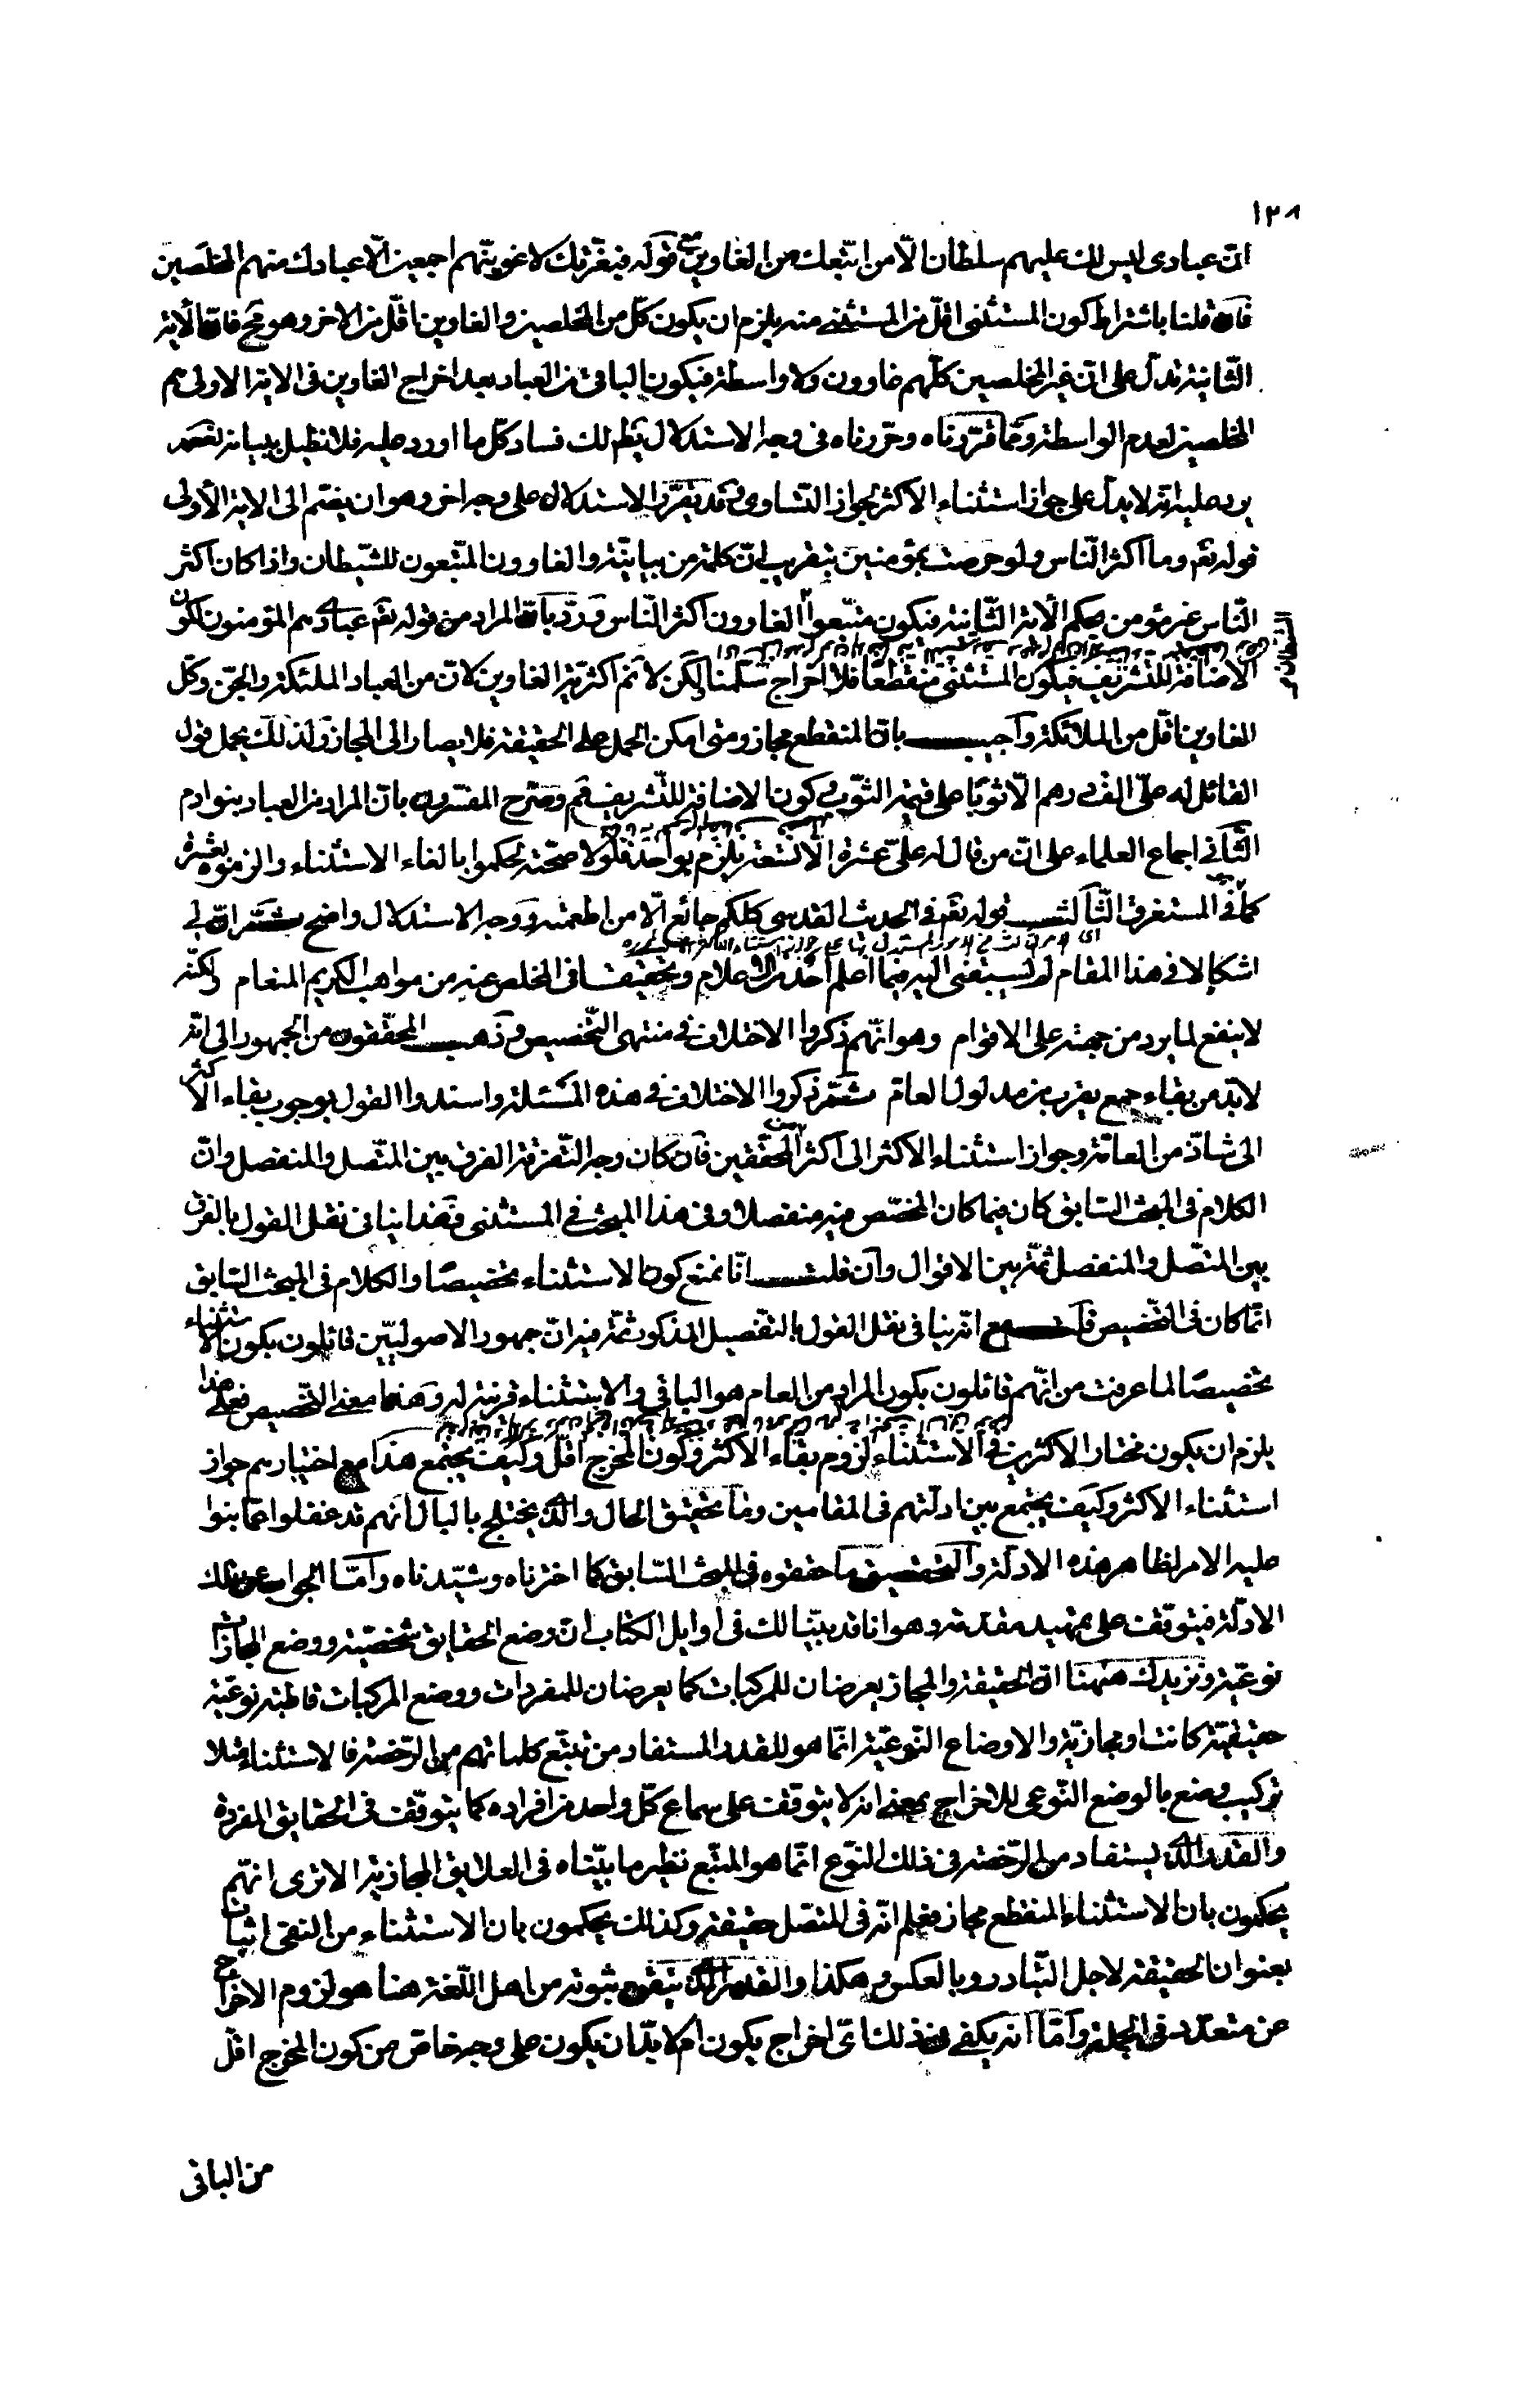 ١٢٨
انّ عبادى ليس لك عليهم سلطان الّا من اتّبعك من الغاوين مع قوله فبعزّتك لاغوينّهم اجمعين الّا عبادك منهم المخلصين
فان قلنا باشتراط كون المستثنى اقلّ من المستثنى منه يلزم ان يكون كلّ من المخلصين والغاوين اقلّ من الاخر وهو مح فانّ الاية
الثّانية تدلّ على انّ غير المخلصين كلّهم غاوون ولا واسطة فيكون الباقى من العباد بعد اخراج الغاوين فى الاية الاولى هم
المخلصين لعدم الواسطة وممّا قرّرناه وحرّرناه فى وجه الاستدلال يظهر لك فساد كلّ ما اورد عليه فلا نطيل ببيانه نعم
يرد عليه انّه لا يدلّ على جواز استثناء الاكثر لجواز التّساوى وقد يقرّر الاستدلال على وجه اخر وهو ان يضمّ الى الاية الأولى
قوله تعم وما اكثر النّاس ولو حرصت بمؤمنين بتقريب انّ كلمة من بيانيّة والغاوون المتّبعون للشّيطان واذا كان اكثر
النّاس غير مؤمن بحكم الأية الثّانية فيكون متّبعوا الغاوون اكثر النّاس وردّ بانّ المراد من قوله تعم عبادى هم المؤمنون لكون
الاضافة للتّشريف فيكون المستثنى منقطعا فلا اخراج سلّمنا لكن لا نم اكثريّة الغاوين لانّ من العباد الملئكة والجنّ وكلّ
الغاوين اقلّ من الملائكة واجيب بانّ المنقطع مجاز ومتى امكن الحمل على الحقيقة فلا يصار الى المجاز ولذلك يحمل قول
القائل له علىّ الف درهم الّا ثوبا على قيمة الثّوب وكون الاضافة للتّشريف مم وصرّح المفسّرون بانّ المراد من العباد بنو ادم
الثّانى اجماع العلماء على انّ من قال له علىّ عشرة الّا تسعة يلزم بواحد فلولا صحّته لحكموا بالغاء الاستثناء والزموه بعشرة
كما فى المستغرق الثّالث قوله تعم فى الحديث القدسى كلكم جائع الّا من اطعمته ووجه الاستدلال واضح ثمّ انّ لى
اشكالا فى هذا المقام لم يسبقنى اليه فيما اعلم احد من الاعلام وتحقيقا فى المخلص عنه من مواهب الكريم المنعام ولكنّه
لا ينفع لما يرد من جهته على الاقوام وهو انّهم ذكروا الاختلاف فى منتهى التّخصيص وذهب المحقّقون من الجمهور الى انّه
لا بدّ من بقاء جمع يقرب من مدلول العامّ ثمّ ذكروا الاختلاف فى هذه المسئلة واسندوا القول بوجوب بقاء الاكثر
الى شاذّ من العامّة وجواز استثناء الاكثر الى اكثر المحقّقين فان كان وجه التّفرقة الفرق بين المتّصل والمنفصل وانّ
الكلام فى المبحث السّابق كان فيما كان المخصّص فيه منفصلا وفى هذا المبحث فى المستثنى فهذا ينافى نقل القول بالفرق
بين المتّصل والمنفصل ثمّة بين الاقوال وان قلت انّا نمنع كون الاستثناء تخصيصا والكلام فى المبحث السّابق
انّما كان فى التّخصيص قلت مع انّه ينافى نقل القول بالتّفصيل المذكور ثمّة فيه انّ جمهور الاصوليّين قائلون بكون الاستثناء
تخصيصا لما عرفت من انّهم قائلون بكون المراد من العام هو الباقى والاستثناء قرينة له وهذا معنى التّخصيص فعلى هذا
يلزم ان يكون مختار الاكثرين فى الاستثناء لزوم بقاء الاكثر وكون المخرج اقلّ وكيف يجتمع هذا مع اختيارهم جواز
استثناء الاكثر وكيف يجتمع بين ادلّتهم فى المقامين وما تحقيق الحال والّذى يختلج بالبال انّهم قد غفلوا عمّا بنوا
عليه الامر لظاهر هذه الادلّة والتحقيق ما حققوه فى المبحث السّابق كما اخترناه وشيّدناه وامّا الجواب عن تلك
الادلّة فيتوقّف على تمهيد مقدّمة وهو انا قد بيّنا لك فى اوايل الكتاب انّ وضع الحقايق شخصيّة ووضع المجازات
نوعيّة ونزيدك هيهنا انّ الحقيقة والمجاز يعرضان للمركبات كما يعرضان للمفردات ووضع المركبات قاطبة نوعيّة
حقيقيّة كانت او مجازيّة والاوضاع النّوعيّة انّما هو للقدر المستفاد من تتبّع كلماتهم من الرّخصة فالاستثناء مثلا
تركيب وضع بالوضع النّوعى للاخراج بمعنى انه لا يتوقّف على سماع كلّ واحد من افراده كما يتوقّف فى الحقايق المفردة
والقدر الّذى يستفاد من الرّخصة فى ذلك النّوع انّما هو المتّبع نظير ما بيّنّاه فى العلايق المجازيّة الا ترى انّهم
يحكمون بان الاستثناء المنقطع مجاز فعلم انّه فى المتّصل حقيقة وكذلك يحكمون بان الاستثناء من النفى اثبات
بعنوان الحقيقة لاجل التّبادر وبالعكس وهكذا والقدر الّذى يتيقّن ثبوته من اهل اللّغة هنا هو لزوم الاخراج
عن متعدّد فى الجملة وامّا انه يكفى فى ذلك اىّ اخراج يكون ام لا بدّ ان يكون على وجه خاصّ من كون المخرج اقلّ
من الباقى